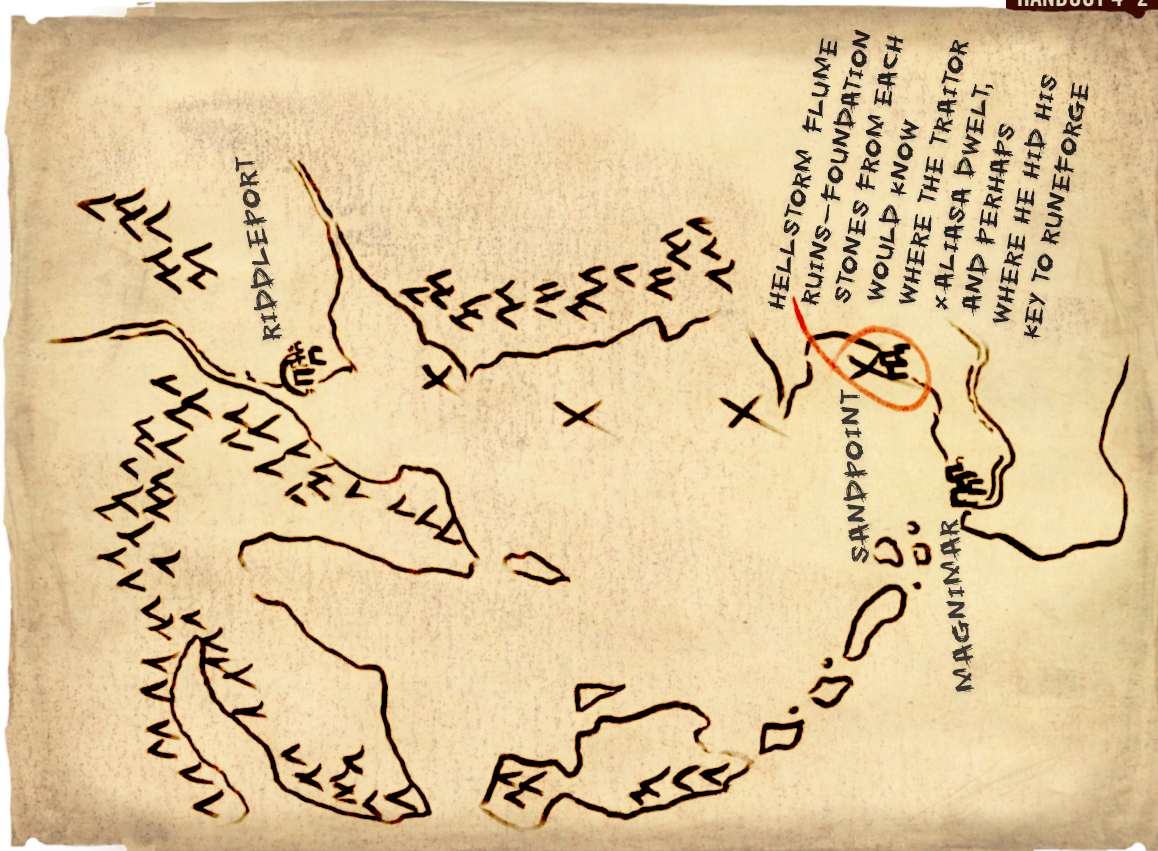 HANDOUT 4-2
HELLSTORM FLUME
RUINS–FOUNDATION
STONES FROM EACH
WOULD KNOW
WHERE THE TRAITOR
XALIASA DWELT,
AND PERHAPS
WHERE HE HID HIS
KEY TO RUNEFORGE
RIDDLEPORT
SANDPOINT
MAGNIMAR